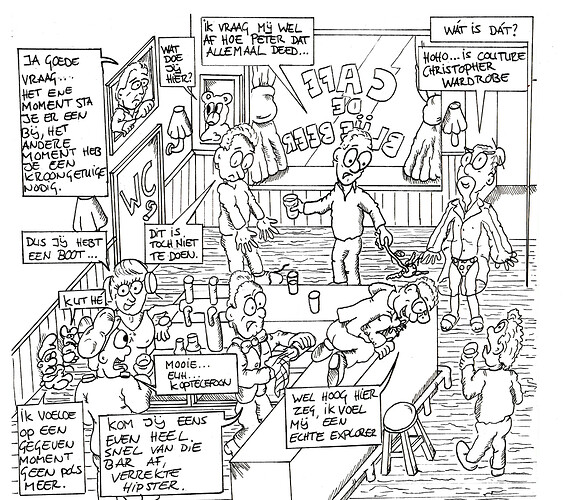 JA GOEDE
VRAAG....
HET ENE
MOMENT STA
JE ER EEN
BIJ, HET
ANDERE
MOMENT HEB
JE EEN
KROONGETUIGE
NODIG.
WAT
DOE
JIJ
HIER?
IK VRAAG MIJ WEL
AF HOE PETER DAT
ALLEMAAL DEED...
WÁT IS DÁT?
HOHO... IS COUTURE
CHRISTOPHER
WARDROBE
CAFE
DE
BLIJE BEER
WC
DIT IS
TOCH NIET
TE DOEN.
DUS JIJ HEBT
EEN BOOT...
KUT HE
MOOIE...
EUH...
KOPTELEFOON
WEL HOOG HIER
ZEG, IK VOEL
MIJ EEN
ECHTE EXPLORER
IK VOELDE
OP EEN
GEGEVEN
MOMENT
GEEN POLS
MEER.
KOM JIJ EENS
EVEN HEEL
SNEL VAN DIE
BAR AF,
VERREKTE
HIPSTER.